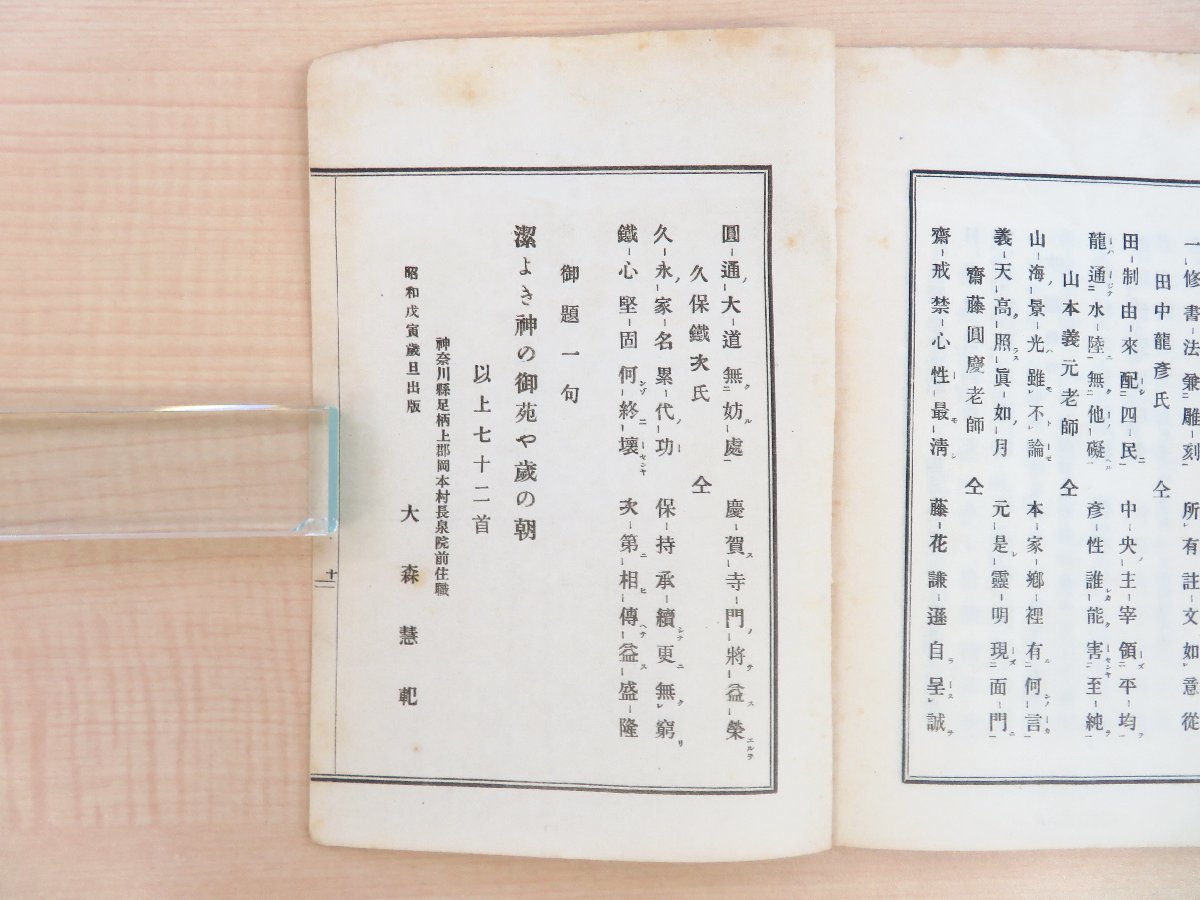 一修書法兼雕刻　所有註文如意從
田中龍彥氏　仝
田制由來配四民　中央主宰領平均
龍通水陸無他礙　彥性誰能害至純
山本義元老師　仝
山海景光雖不論　本家鄉裡有何言
義天高照眞如月　元是靈明現面門
齋藤圓慶老師　仝
齋戒禁心性最淸　藤花謙遜自呈誠
圓通大道無妨處　慶賀寺門將益榮
久保鐵次氏　仝
久永家名累代功　保持承續更無窮
鐵心堅固何終壞　次第相傳益盛隆
御題一句
潔よき神の御苑や歲の朝
以上七十二首
神奈川縣足柄上郡岡本村長泉院前住職
昭和戊寅歲旦出版　大森慧
十